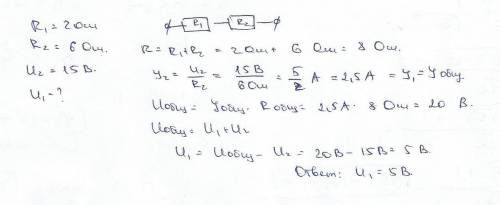 R₁ = 2 Ом
R₂ = 6 Ом.
U₂ = 15 В.
U₁ - ?
R₁ R₂
R = R₁ + R₂ = 2 Ом + 6 Ом = 8 Ом.
У₂ = U₂/R₂ = 15 В/6 Ом = 5/2 А = 2,5 А = У₁ = Уобщ.
Uобщ = Уобщ. Rобщ = 2,5 А · 8 Ом = 20 В.
Uобщ = U₁ + U₂
U₁ = Uобщ - U₂ = 20 В - 15 В = 5 В.
Ответ: U₁ = 5 В.